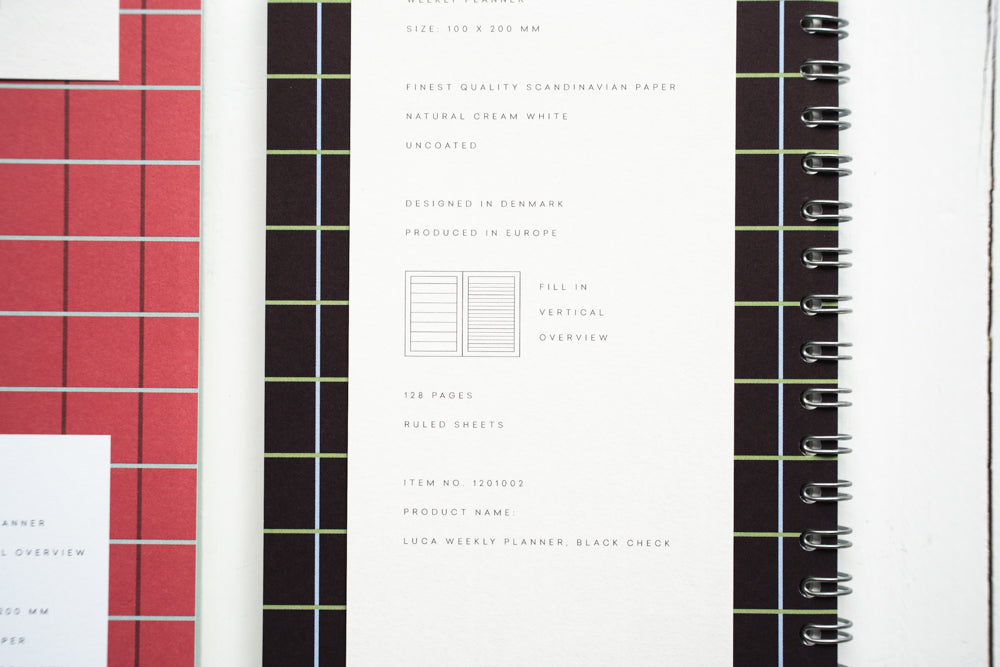 WEEKLY PLANNER
SIZE: 100 X 200 MM
FINEST QUALITY SCANDINAVIAN PAPER
NATURAL CREAM WHITE
UNCOATED
DESIGNED IN DENMARK
PRODUCED IN EUROPE
FILL IN
VERTICAL
OVERVIEW
128 PAGES
RULED SHEETS
ITEM NO. 1201002
PRODUCT NAME:
LUCA WEEKLY PLANNER, BLACK CHECK
ANNER
L OVERVIEW
200 MM
PER